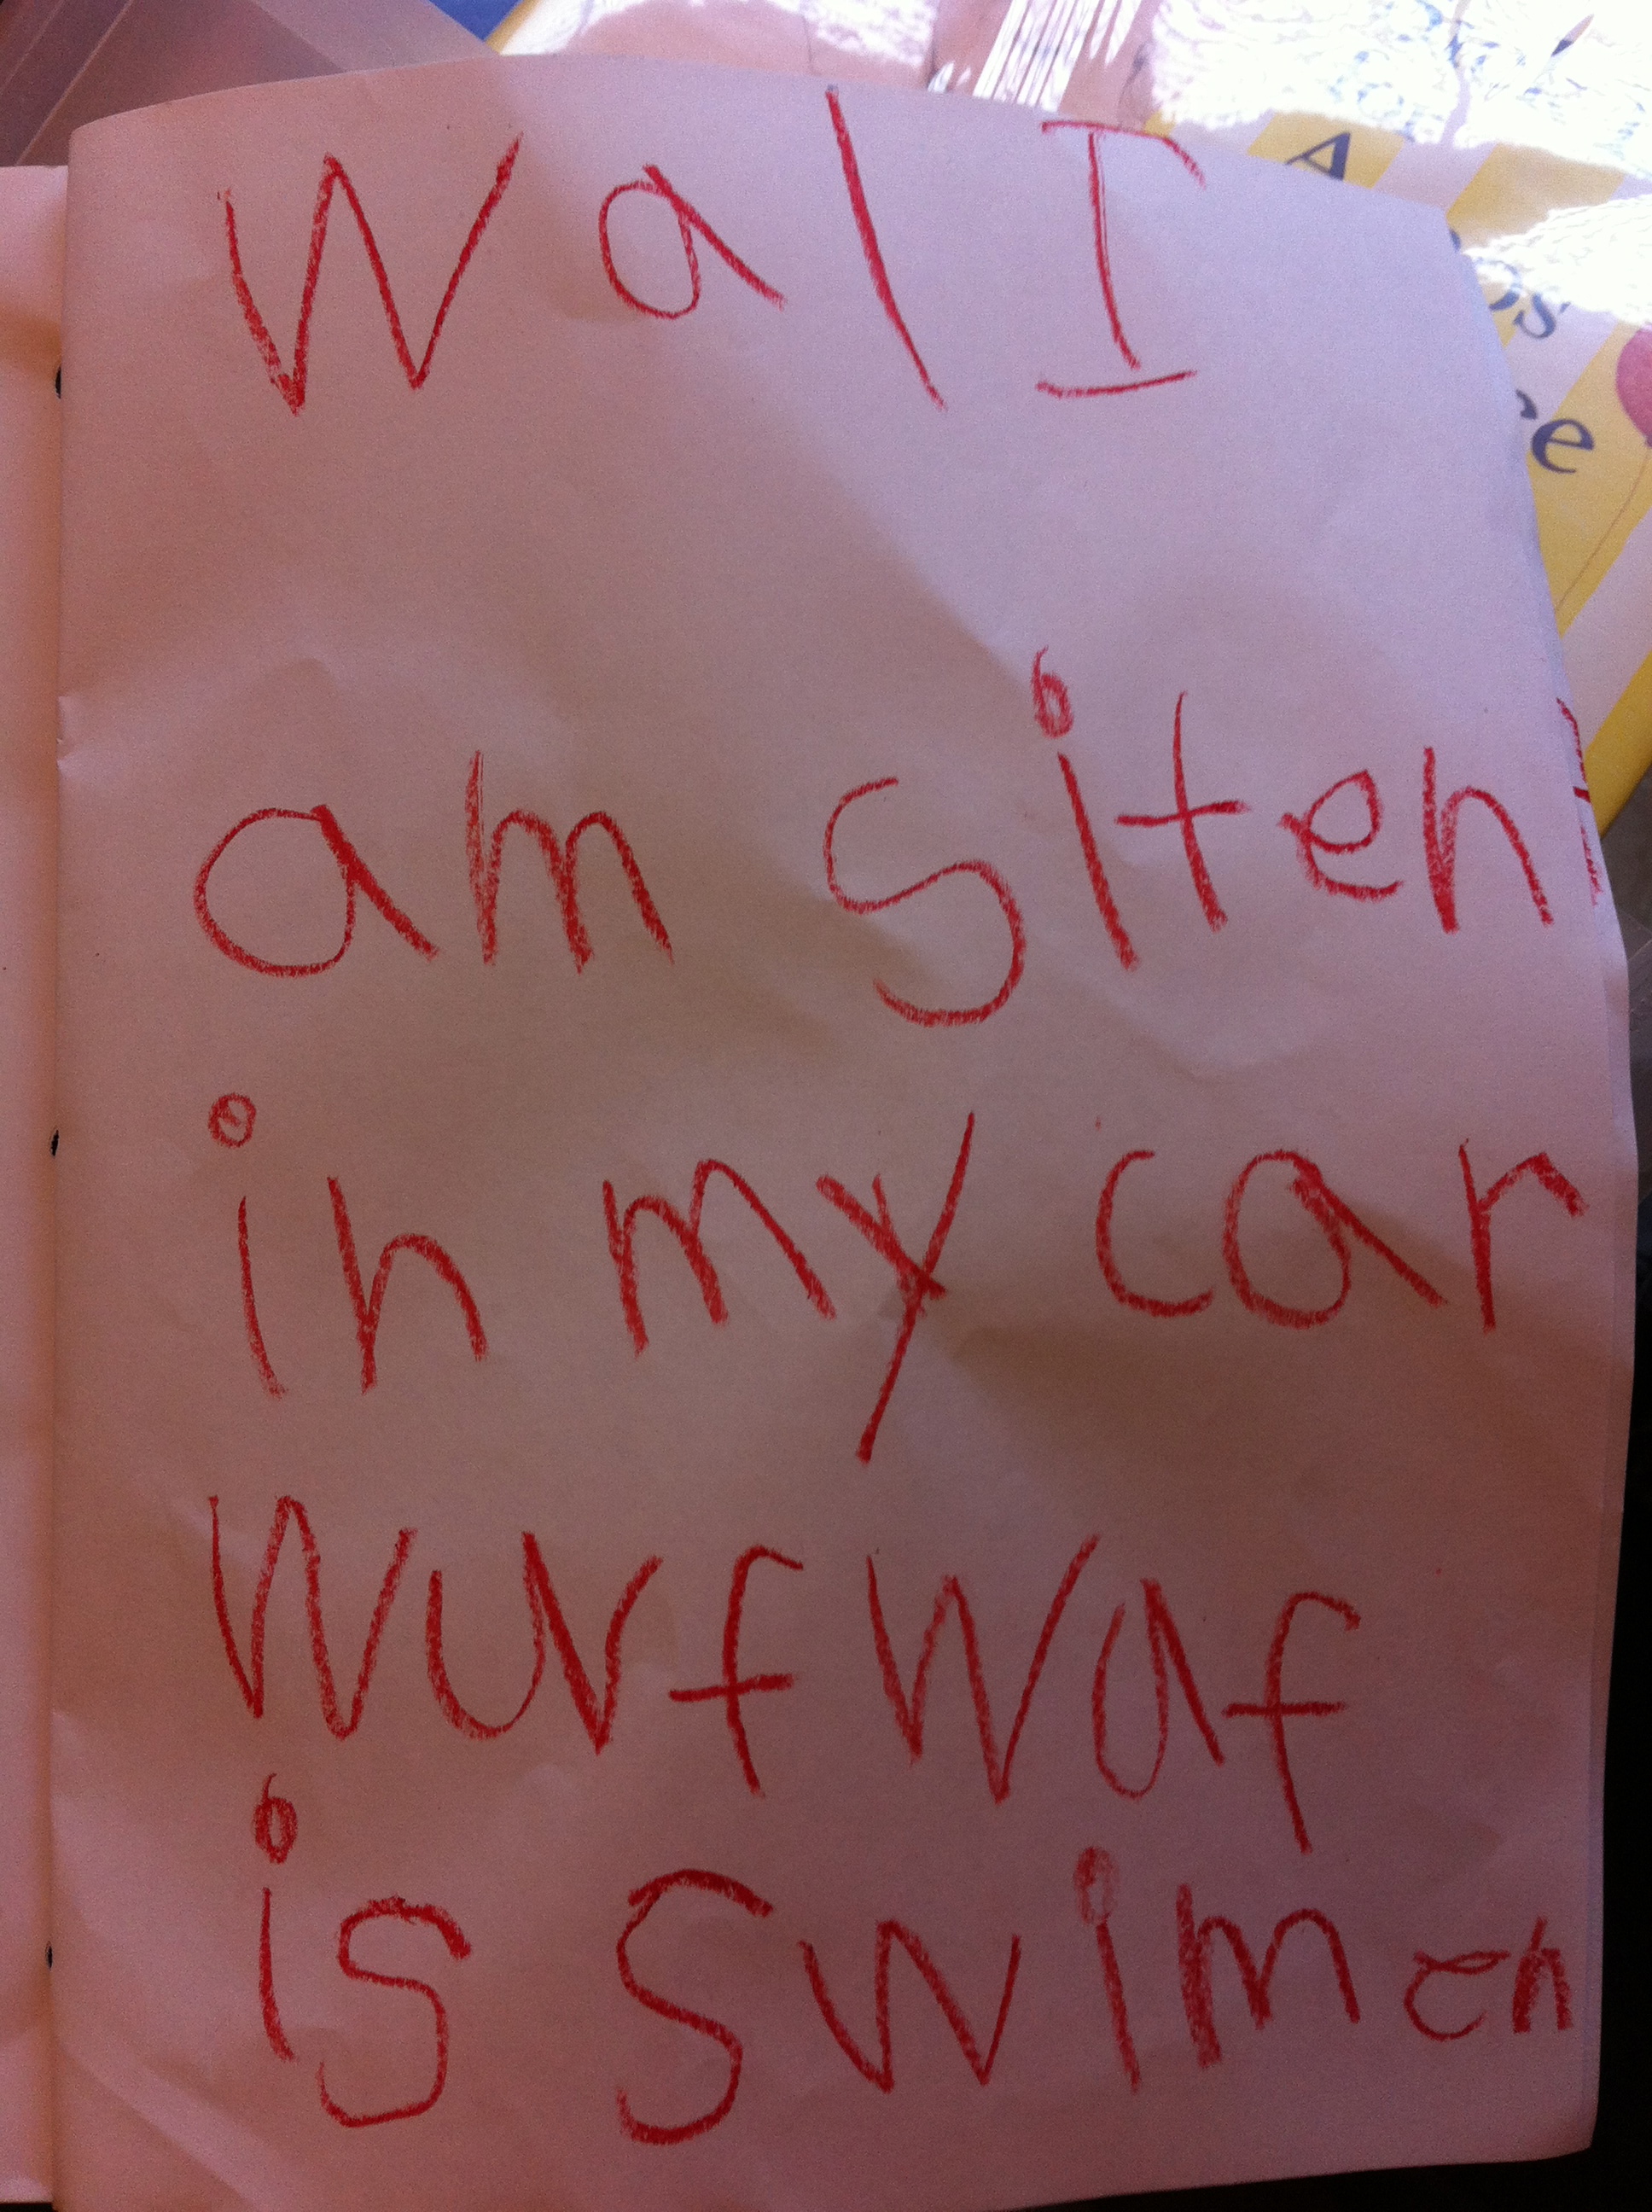 Wal I
am siten
in my car
Wurf Waf
is swimen
A
os
re